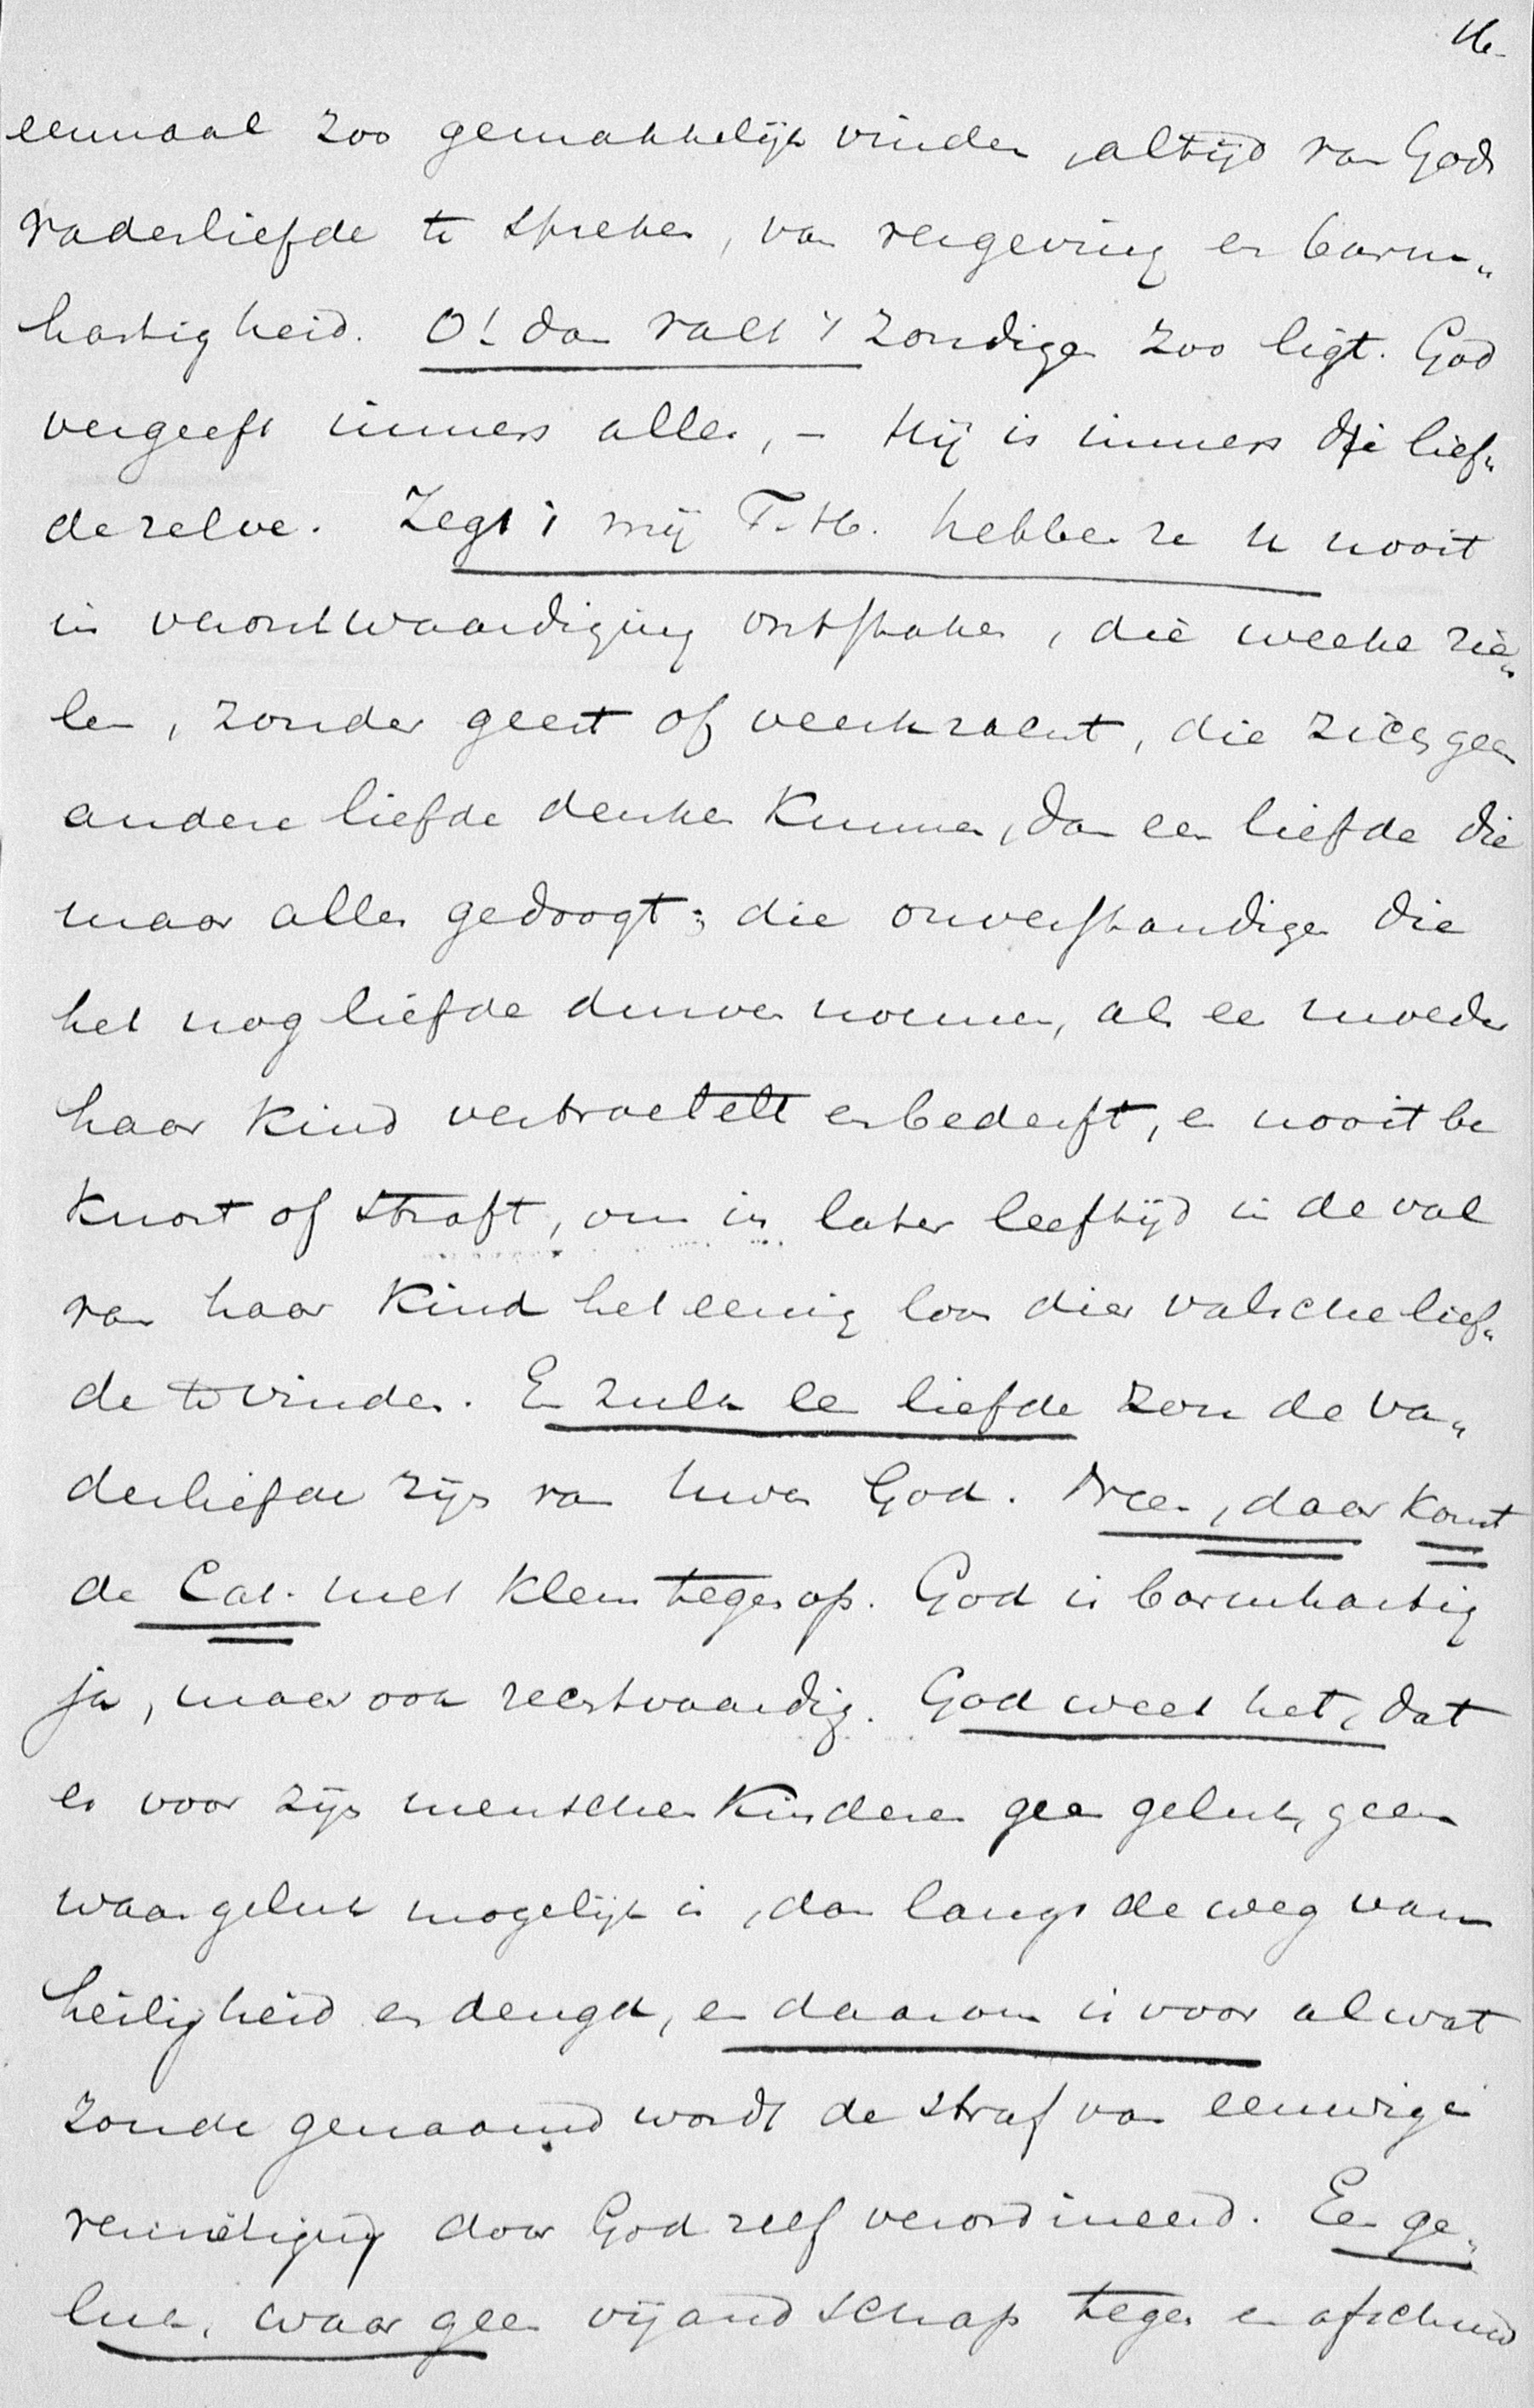 16-
eenmaal zoo gemakkelijk vinden, altijd van Gods
vaderliefde te spreken, van vergeving en barm„
hartigheid. O! dan valt 't zondigen zoo ligt. God
vergeeft immers alles, – Hij is immers die lief„
de zelve. Zegt 't mij T.H. hebben ze u nooit
in verontwaardiging ontstoken, die weeke zie„
len, zonder geest of veerkracht, die zich geen
andere liefde denken kunnen, dan een liefde die
maar alles gedoogt; die onverstandigen die
het nog liefde durven noemen, als een moeder
haar kind vertroetelt en bederft, en nooit be
knort of straft, om in later leeftijd in de val
van haar kind het eenig loon dier valsche lief„
de te vinden. En zulk een liefde zou de va„
derliefde zijn van uwen God. Neen, daar komt
de Cat. met klem tegen op. God is barmhartig
ja, maar ook rechtvaardig. God weet het, dat
er voor zijn menschenkinderen geen geluk, geen
waar geluk mogelijk is, dan langs de weg van
heiligheid en deugd, en daarom is voor al wat
zonde genaamd wordt de straf van eeuwige
vernietiging door God zelf verordineerd. Een ge„
luk, waar geen vijandschap tegen en afschuw